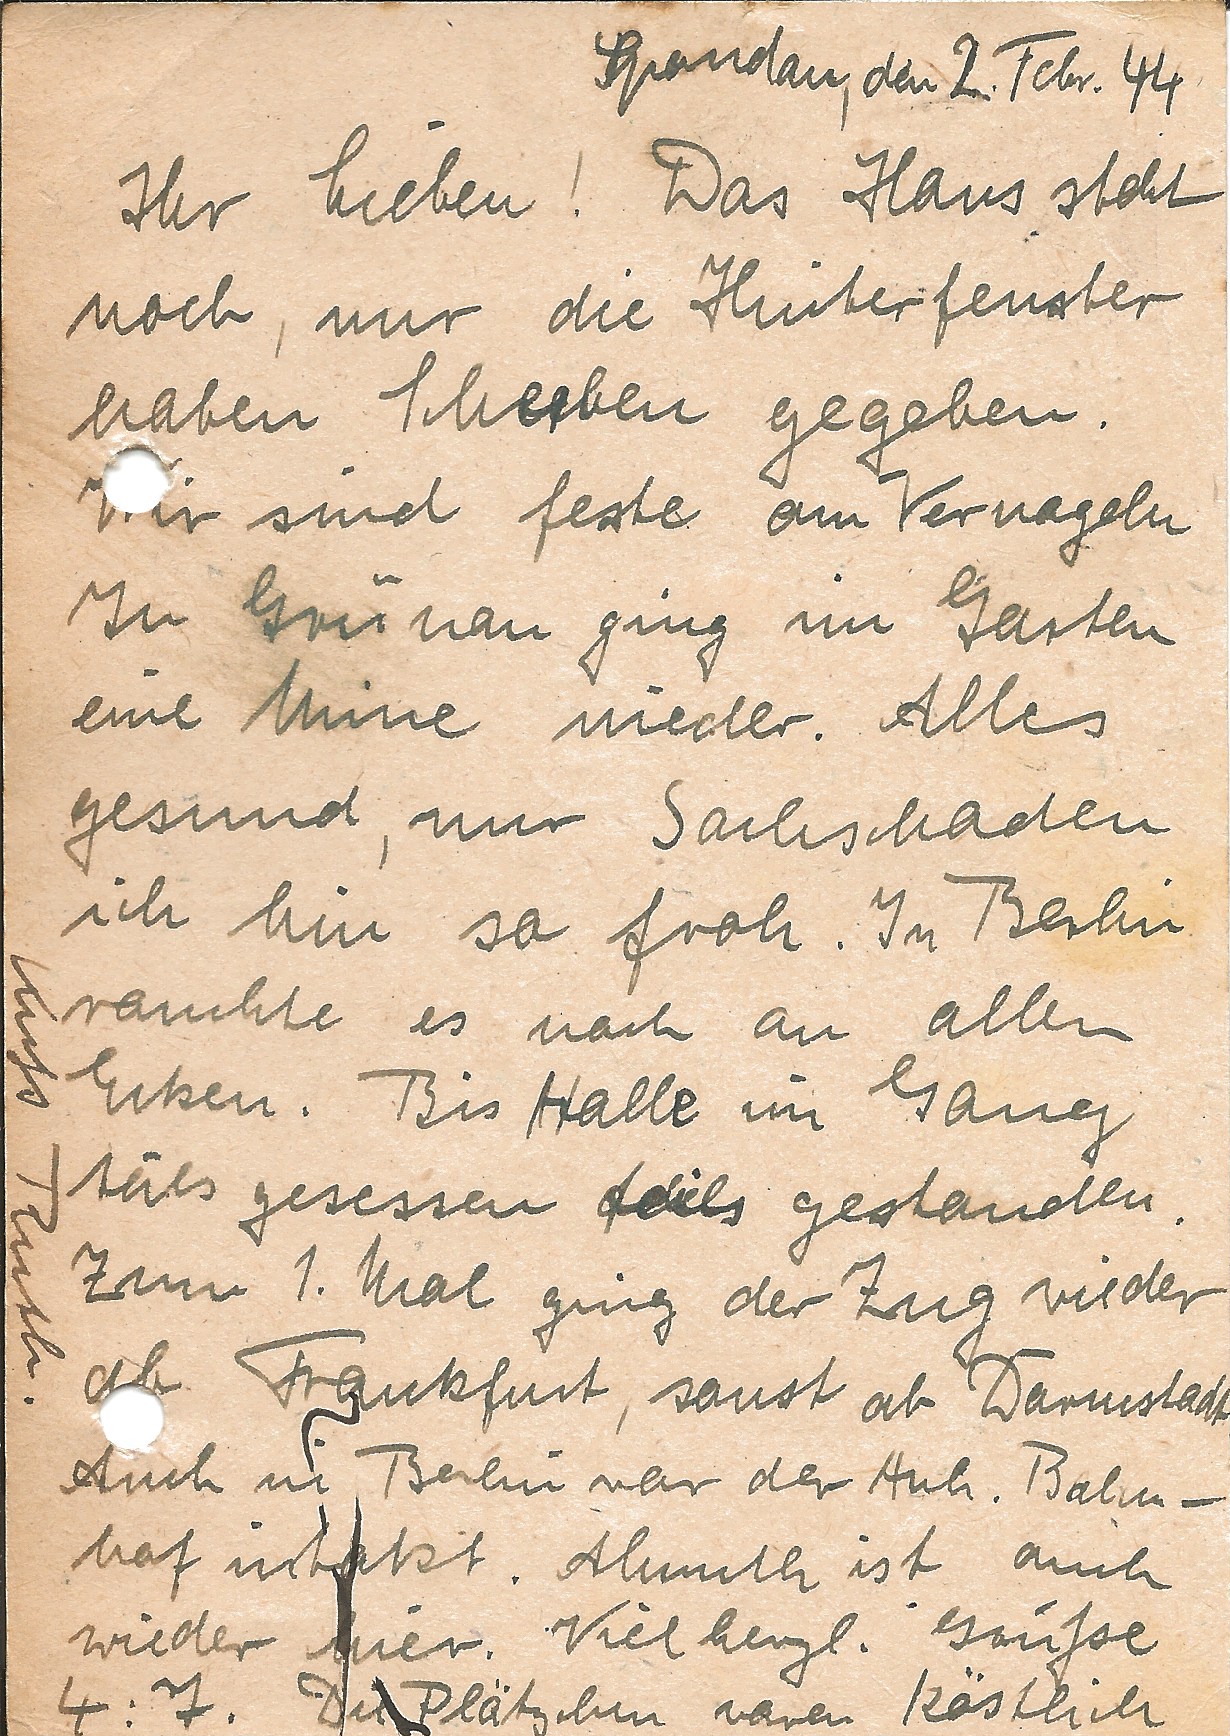 Spandau, den 2. Febr. 44
Ihr Lieben! Das Haus steht
noch, nur die Hinterfenster
haben Scheiben gegeben.
Wir sind feste am Vernageln
In Grünau ging im Garten
eine Mine nieder. Alles
gesund, nur Sachschaden
ich bin so froh. In Berlin
rauchte es noch an allen
Ecken. Bis Halle im Gang
teils gesessen teils gestanden.
Zum 1. Mal ging der Zug wieder
ab Frankfurt, sonst ab Darmstadt
Auch in Berlin war der Anh. Bahn-
hof intakt. Almuth ist auch
wieder hier. Viel herzl. Grüße
4:7. Die Plätzchen waren köstlich
Kuss Ruth.